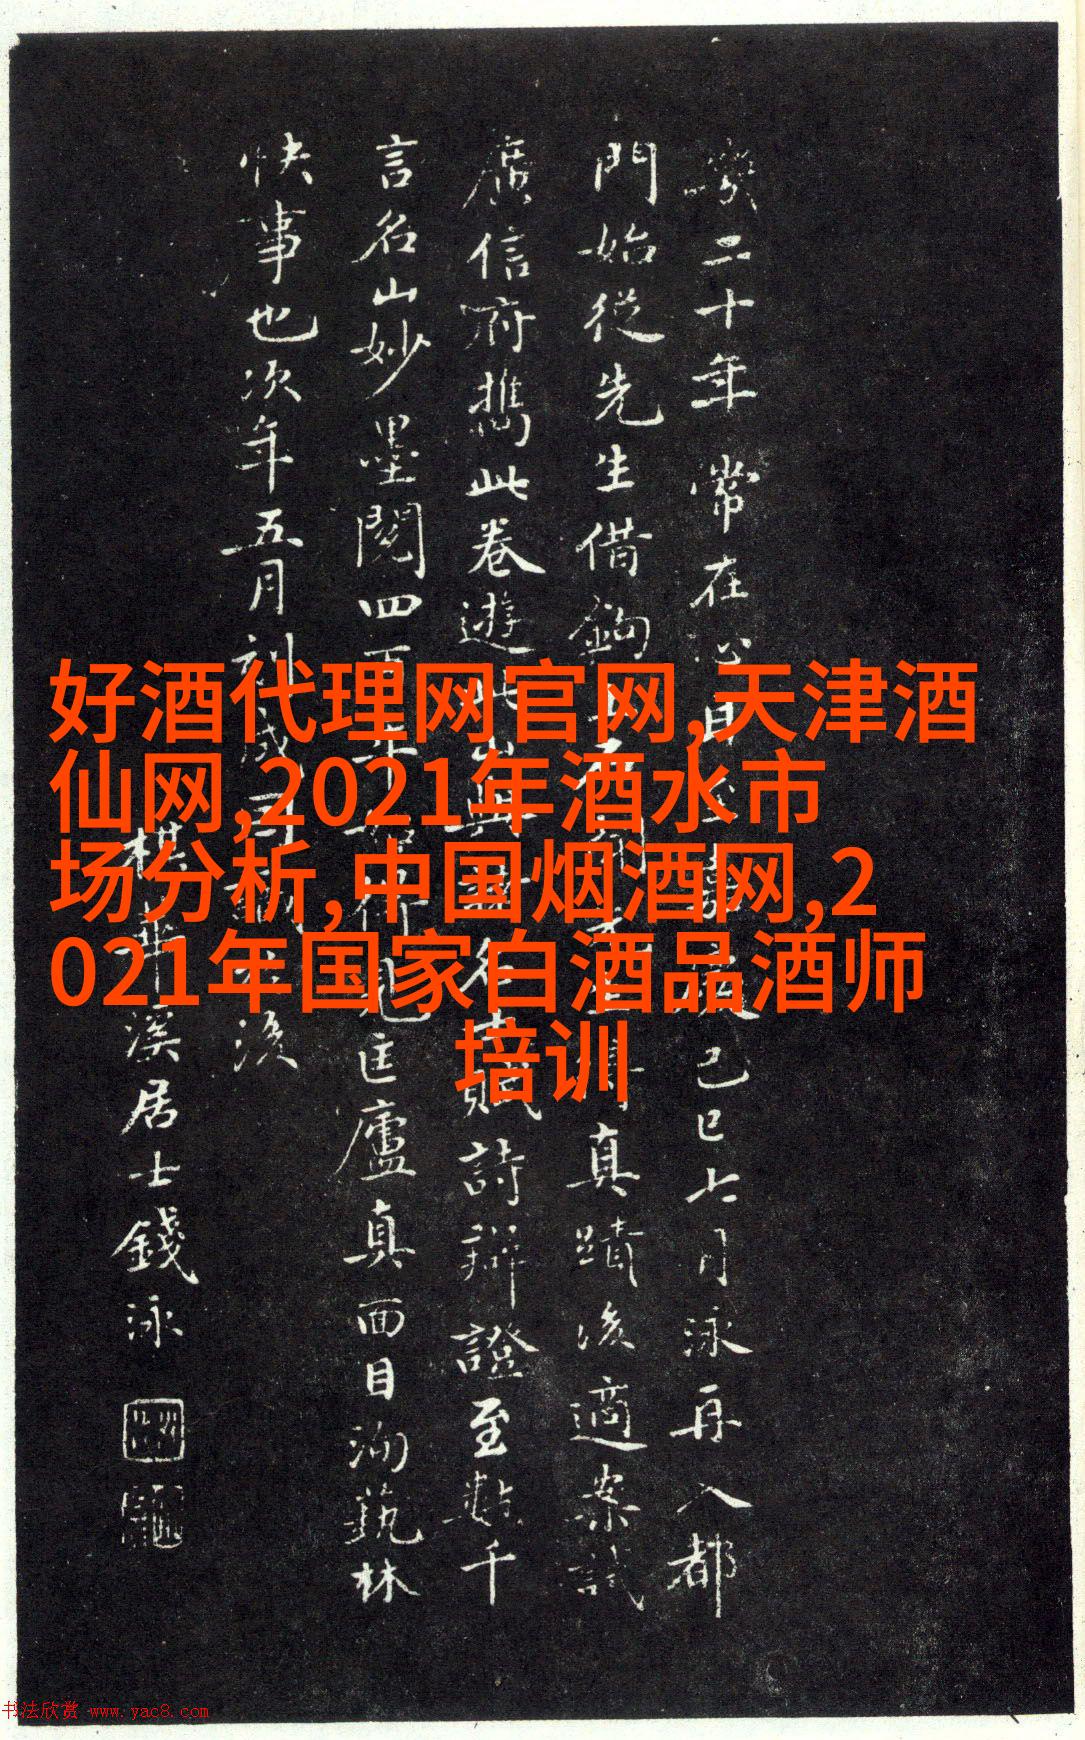 好酒代理网官网,天津酒
仙网,2021年酒水市
场分析,中国烟酒网,2
021年国家白酒品酒师
培训
二十年常在心目己巳七月泳再入都
門始從先生借鉤真蹟後適案試
廣信府携此卷遊賦詩辯證至數千
言名山妙墨閱四百年匡廬真面目洵藝林
快事也次年五月刻成後
梅華溪居士錢泳
书法欣赏 www.yac8.com